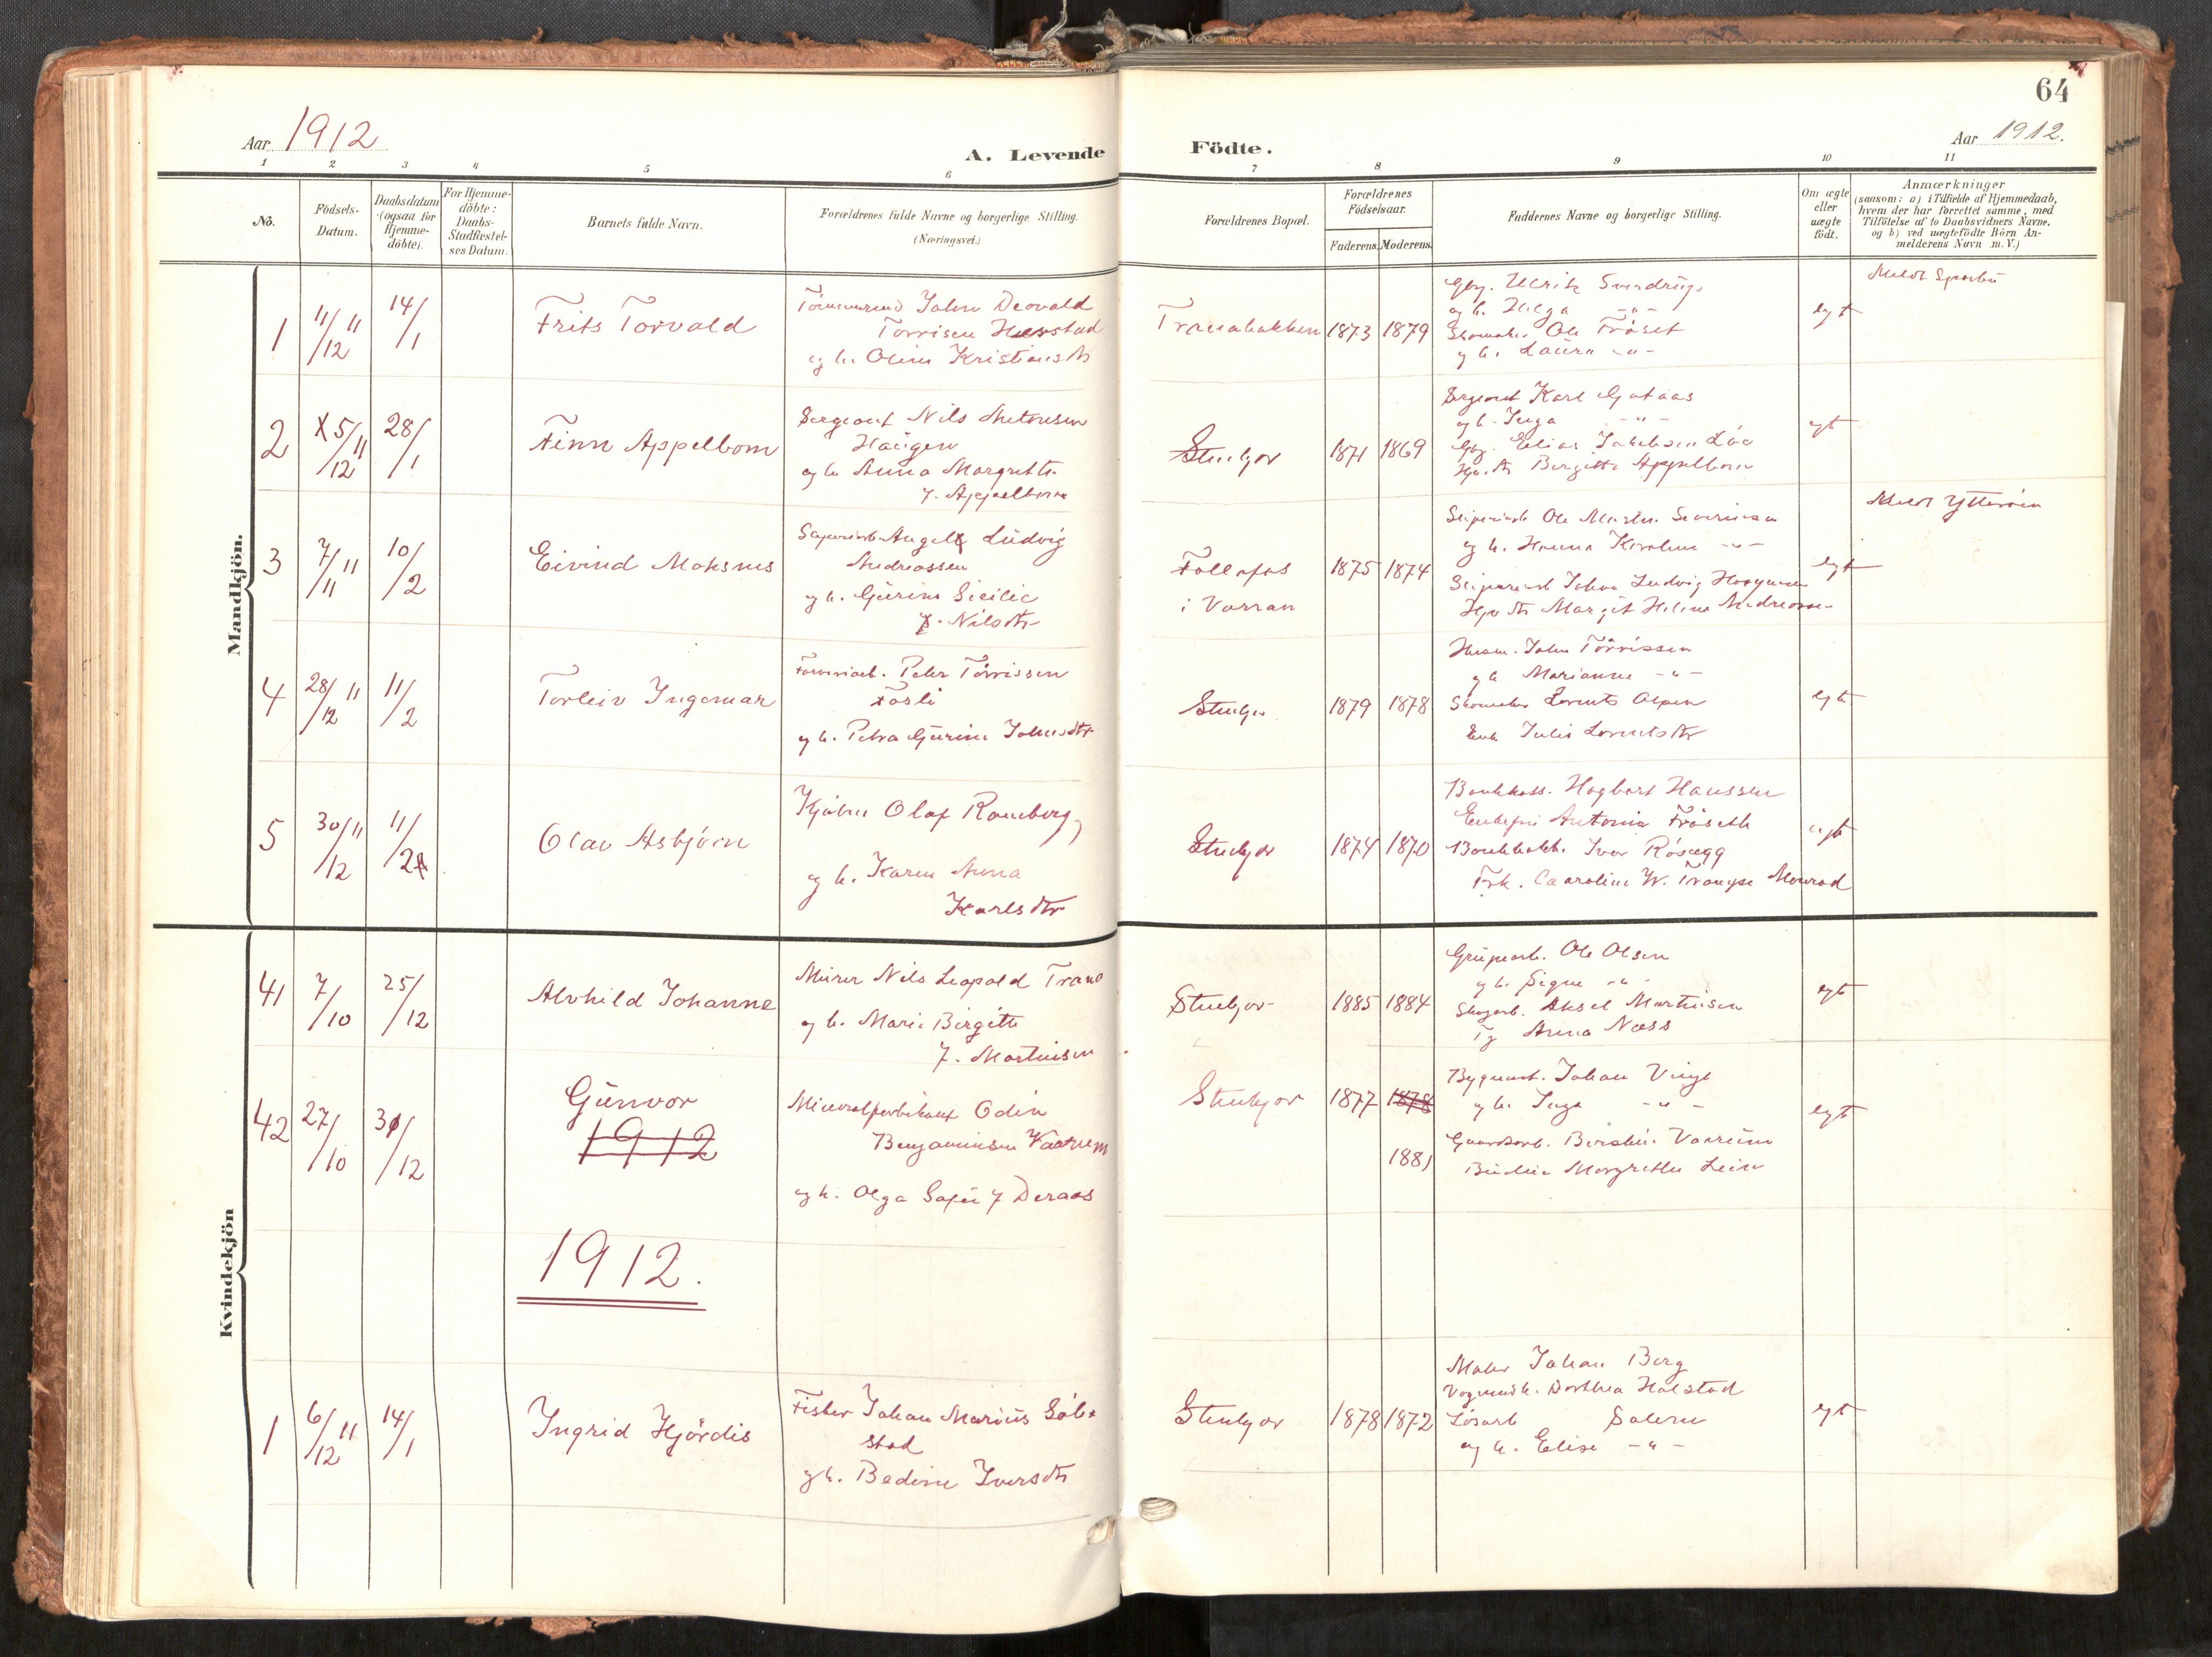 64
Aar 1912
A. Levende Födte.
Aar 1912.
1 2 3 4 5 6 7 8 9 10 11
No.
Födsels-
Datum.
Daabsdatum
(ogsaa for
Hjemme-
döbte).
For Hjemme-
döbte:
Daabs-
Stadfæstel-
ses Datum.
Barnets fulde Navn.
Forældrenes fulde Navne og borgerlige Stilling.
(Næringsvei.)
Forældrenes Bopæl.
Forældrenes
Födselsaar.
Faderens. Moderens.
Faddernes Navne og borgerlige Stilling.
Om ægte
eller
uægte
födt.
Anmærkninger
(saasom: a) i Tilfælde af Hjemmedaab,
hvem der har forrettet samme, med
Tilföielse af to Daabsvidners Navne,
og b) ved uægtefödte Börn An-
melderens Navn m. V.)
Mandkjön.
1
11/12 11
14/1
Frits Torvald
John Deovald
Torrisen Herstad
og h. Olina Kristiansdtr
Tranabakken
1873 1879
Gbr. Ulrik Svendrup
og h. Helga -"-
Skomaker Ole Fröset
og h. Laura -"-
egt
Meldt Sparbu
2
5/12 11
28/1
Finn Appelbom
Sergeant Nils Antonsen
Haugen
og h. Anna Margrethe
f. Appelbom
Stenkjær
1871 1869
Sergeant Karl Gataas
og h. Inga -"-
Gbr. Elias Jakobsen Löe
Birgitte Appelbom
egt
3
7/11 11
10/2
Eivind Moksnes
Angel Ludvig
Andreassen
og h. Gurine Sicilie
Nilsdtr
Follafos
i Varran
1875 1874
Ole Martin Severinsen
og h. Hanna Karoline -"-
Johan Ludvig
Margit Helene Andreassen
egt
Meldt Ytterøen
4
28/12 11
11/2
Torleiv Ingemar
Peter Törrissen
Fosli
og h. Petra Gurine Johnsdtr
Stenkjær
1879 1878
Husm. John Törrissen
og h. Marianne -"-
Skomaker Lorents Olsen
Enke Julie Lorentsdtr
egt
5
30/12 11
11/2
Olav Asbjörn
Kjøbm Olaf Ramberg,
og h. Karen Anna
Karlsdtr
Stenkjær
1874 1870
Bankkass. Hagbart Hanssen
Enkefru Antonia Fröseth
Bankbokh. Ivar Rösegg
Frk. Caroline W. Trampe Monrad
egt
Kvindekjön
41
7/10
25/12
Alvhild Johanne
Murer Nils Leopold Trana
og h. Marie Birgitte
f. Martinsen
Stenkjær
1885 1884
Grubearb. Ole Olsen
og h. Signe -"-
Aksel Martinsen
Anna Næss
egt
42
27/10
31/12
Gunvor
1912
Mineralfabrikant Odin
Benjaminsen Kaatrem
og h. Olga Sofie f Deraas
Stenkjær
1877 1878
1881
Bygmest. Johan Vingt
og h. Inga -"-
Gaardarb.
Margrethe Lein
egt
1912.
1
6/12 11
14/1
Ingrid Hjördis
Fisker Johan Marius Söl-
stad
og h. Bedine Iversdtr
Stenkjær
1878 1872
Maler Johan Berg
Vognmands. Dorthea Halstad
Lösarb Salem
og h. Elise -"-
egt